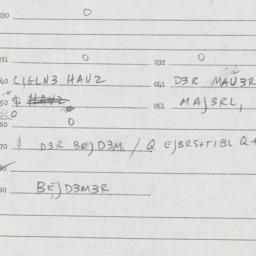 030 0
031 0 032 0
040 C,GLN3 HAUZ 041 D3R MAU3R
050 $ HAUZ 051 MAJ3RL,
060 0
070 $ D3R BEJD3M / Q EJBRSTTIBL Q+
090 BEJD3M3R